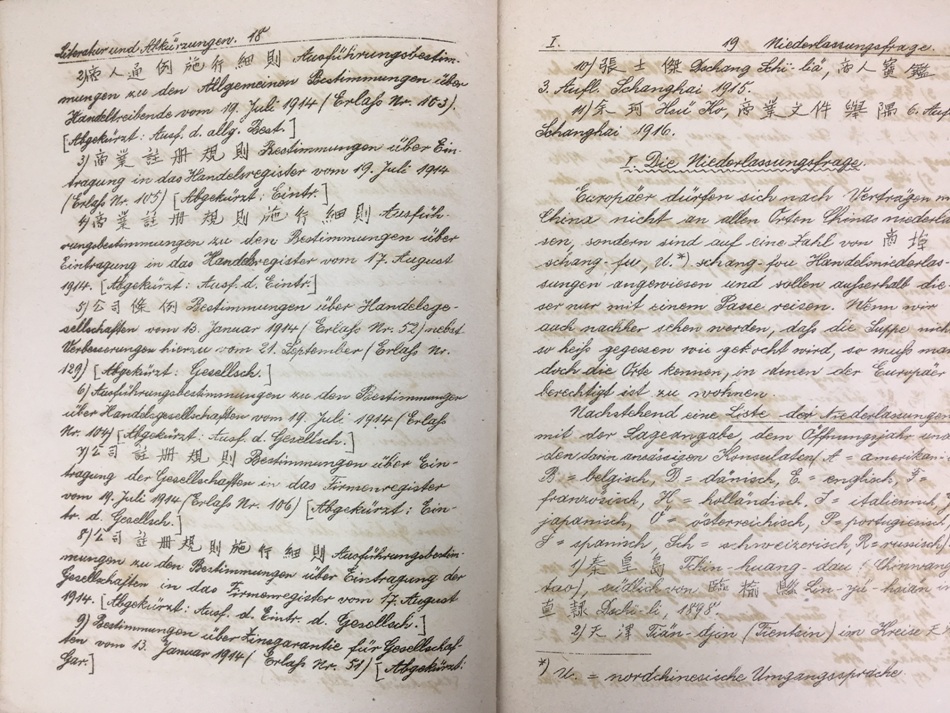 Literatur und Abkürzungen. 18
2) 商人通例施行細則 Ausführungsbestim-
mungen zu den Allgemeinen Bestimmungen über
Handeltreibende vom 19. Juli 1914 (Erlaß Nr. 103).
[Abgekürzt: Ausf. d. allg. Best.]
3) 商業註册規則 Bestimmungen über Ein-
tragung in das Handelsregister vom 19. Juli 1914
(Erlaß Nr. 105) [Abgekürzt: Eintr.]
4) 商業註册規則施行細則 Ausfüh-
rungsbestimmungen zu den Bestimmungen über
Eintragung in das Handelsregister vom 17. August
1914. [Abgekürzt: Ausf. d. Eintr.]
5) 公司條例 Bestimmungen über Handelsge-
sellschaften vom 13. Januar 1914 (Erlaß Nr. 52) nebst
Verbesserungen hierzu vom 21. September (Erlaß Nr.
129) [Abgekürzt: Gesellsch.]
6) Ausführungsbestimmungen zu den Bestimmungen
über Handelsgesellschaften vom 19. Juli 1914 (Erlaß
Nr. 104) [Abgekürzt: Ausf. d. Gesellsch.]
7) 公司註册規則 Bestimmungen über Ein-
tragung der Gesellschaften in das Firmenregister
vom 19. Juli 1914 (Erlaß Nr. 106) [Abgekürzt: Ein-
tr. d. Gesellsch.]
8) 公司註册規則施行細則 Ausführungsbestim-
mungen zu den Bestimmungen über Eintragung der
Gesellschaften in das Firmenregister vom 17. August
1914. [Abgekürzt: Ausf. d. Eintr. d. Gesellsch.]
9) Bestimmungen über Zinsgarantie für Gesellschaf-
ten vom 13. Januar 1914 (Erlaß Nr. 51) [Abgekürzt:
Gar.]
I. 19 Niederlassungsfrage.
10) 張士傑 Dschang Schï-liä, 商人寶鑑
3. Aufl. Schanghai 1915.
11) 余珂 Hsü Ko, 商業文件舉隅 6. Auf
Schanghai 1916.
I. Die Niederlassungsfrage.
Europäer dürfen sich nach Verträgen m
China nicht an allen Orten Chinas niederlas
sen, sondern sind auf eine Zahl von 商埠
schang-fu, U.*) schang-fou Handelsniederlas-
sungen angewiesen und sollen außerhalb die
ser nur mit einem Passe reisen. Wenn wir
auch nachher sehen werden, daß die Suppe nich
so heiß gegessen wie gekocht wird, so muß man
doch die Orte kennen, in denen der Europäer
berechtigt ist zu wohnen.
Nachstehend eine Liste der Niederlassungen
mit der Lageangabe, dem Öffnungsjahr und
den darin ansässigen Konsulaten (A = amerikani-
B = belgisch, D = dänisch, E = englisch, F =
französisch, H = holländisch. I = italienisch,
japanisch, O = österreichisch, P = portugiesisch
S = spanisch, Sch = schweizerisch, R = russisch)
1) 秦皇島 Tchin-huang-dau (Chinwang
tao), südlich von 臨榆縣 Lin-yü-hsiän
直隸 Dschï-li, 1898.
2) 天津 Tiän-djin (Tientsin) im Kreise
*) U. = nordchinesische Umgangssprache